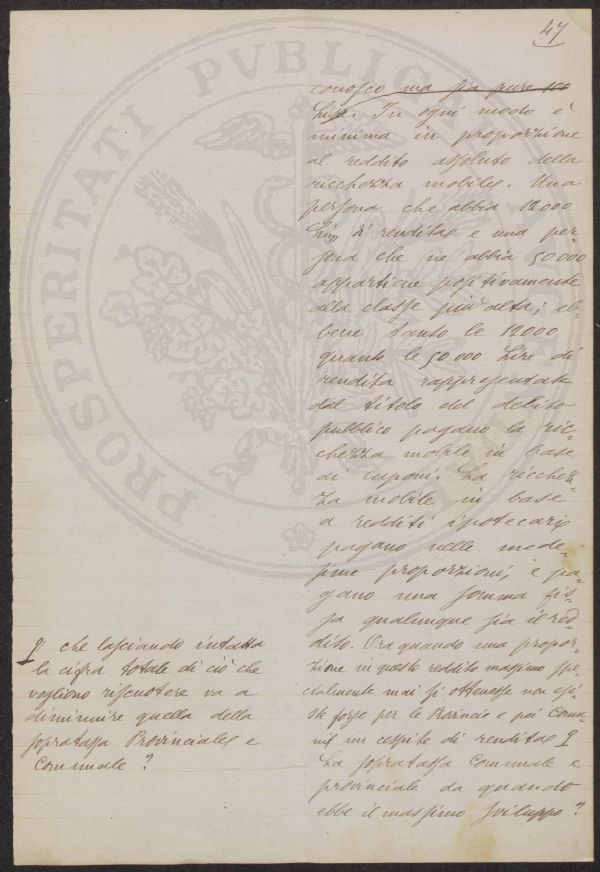 47
conosco ma sia pure 100
Lire. In ogni modo è
minima in proporzione
al reddito assoluto della
ricchezza mobile. Una
persona che abbia 12000
Lire di rendita e una per-
sona che ne abbia 50000
appartiene positivamente
alla classe più alta; eb-
bene tanto le 12000
quanto le 50 000 Lire di
rendita rappresentate
dal titolo del debito
pubblico pagano la ric-
chezza mobile in base
di cuponi. La ricchez-
za mobile in base
a redditi ipotecari
pagano nelle mede-
sime proporzioni, e pa-
gano una somma fis-
sa qualunque sia il red-
dito. Ora quando una propor-
zione in questo reddito massimo spe-
cialmente mai si ottenesse non esi-
ste forse per le Provincie e pei Comu-
ni un cespite di rendita
La sopratassa Comunale e
provinciale da quando
ebbe il massimo sviluppo?
che lasciando intatta
la cifra totale di ciò che
vogliono riscuotere va a
diminuire quella della
sopratassa Provinciale e
Comunale?
PROSPERITATI PVBLICAE